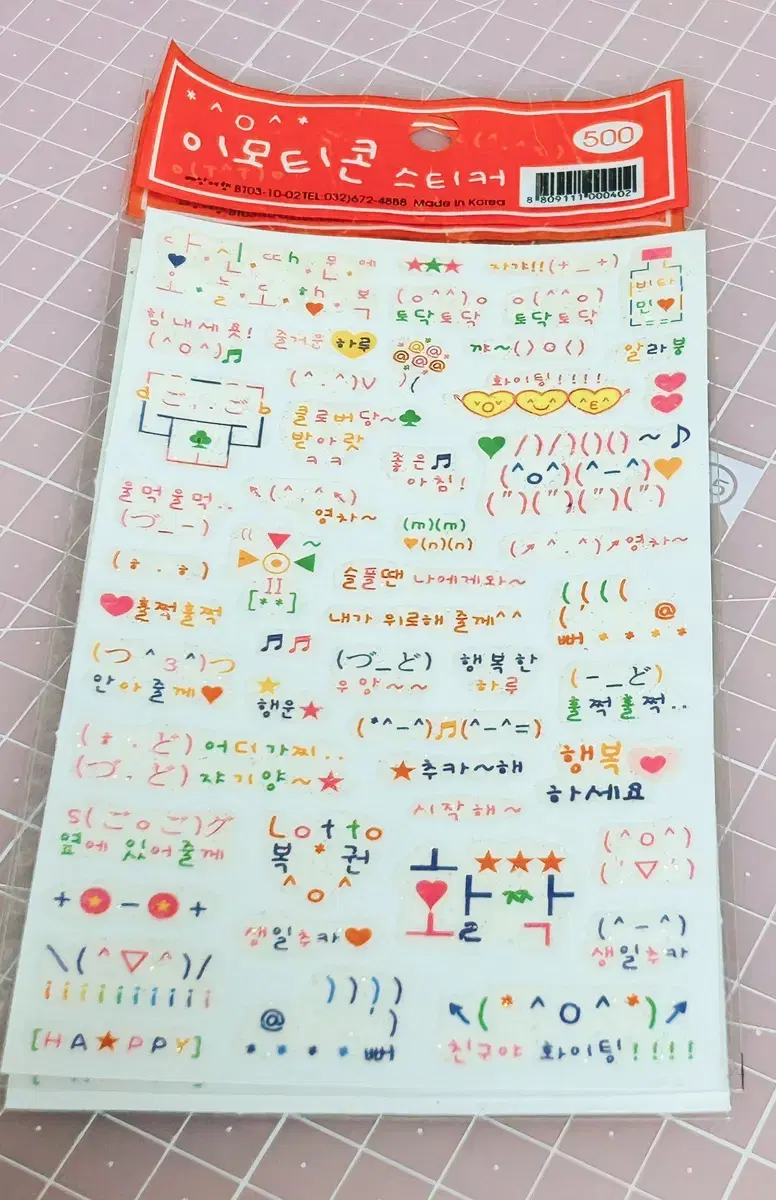 * ^ O ^ *
이모티콘 스티커
500
BT03-10-02 TEL:032)672-4888 Made in Korea
8 809111 000402
당.신.때.문.에
오.늘.도.행.복
★★★
자갸!!(+_+)
비타
민♥
(o^^)o
토닥토닥
o(^^o)
토닥토닥
힘내세욧!
(^O^)♬
즐거운 하루
꺄~()O()
알라븅
(^.^)V
화이팅!!!!
클로버당~♣
받아랏
ㅋㅋ
좋은♬
아침!
♥/)/)()()~♪
(^o^)(^-^)♥
(")(")(")(")
울먹울먹..
(づ_-)
↖(^.^↖)
영차~
(m)(m)
♥(n)(n)
(↗^.^)↗영차~
(ㅎ.ㅎ)
♥훌쩍훌쩍
II
[**]
슬플땐 나에게와~
내가 위로해 줄께^^
((((
(' @
뻐 * * * *
(つ^3^)つ
안아줄께♥
♬♬
★
행운★
(づ_ど)
우앙~~
행복한
하루
(-_ど)
훌쩍훌쩍..
(*^-^)♬(^-^=)
(ㅎ.ど)어디가찌..
(づ.ど)쟈기양~★
★추카~해
행복♥
하세요
시작해~
S(ごoご)グ
옆에 있어줄께
Lotto
복*권
^o^
★★★
(^O^)
('▽')
+★-★+
생일추카♥
(^-^)
생일추카
\(^▽^)/
¡¡¡¡¡¡¡¡¡¡
[HA★PPY]
))))
@ )
* * * * 뻐
↖(*^O^*)↗
친구야 화이팅!!!!